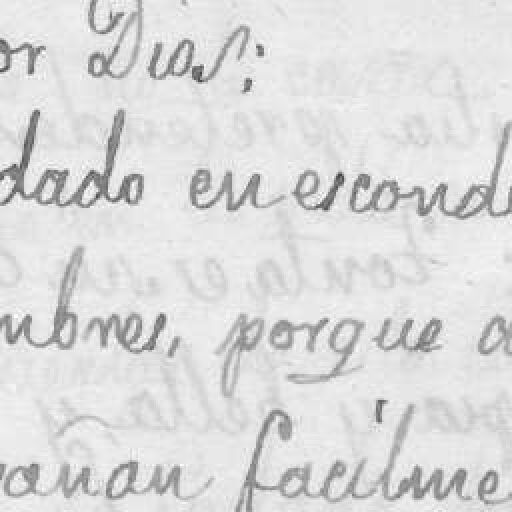 or Dios;
dado en escond
mbres, porque a
rañan facilme